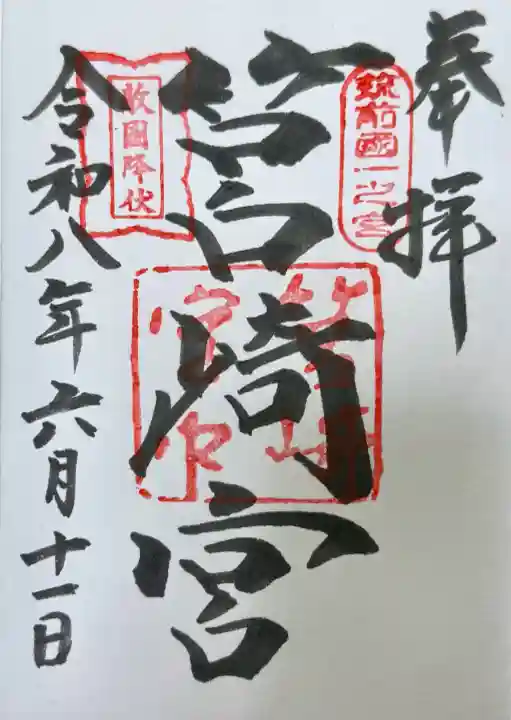 奉拝
筑前國一之宮
筥崎宮
敵国降伏
令和八年六月十一日